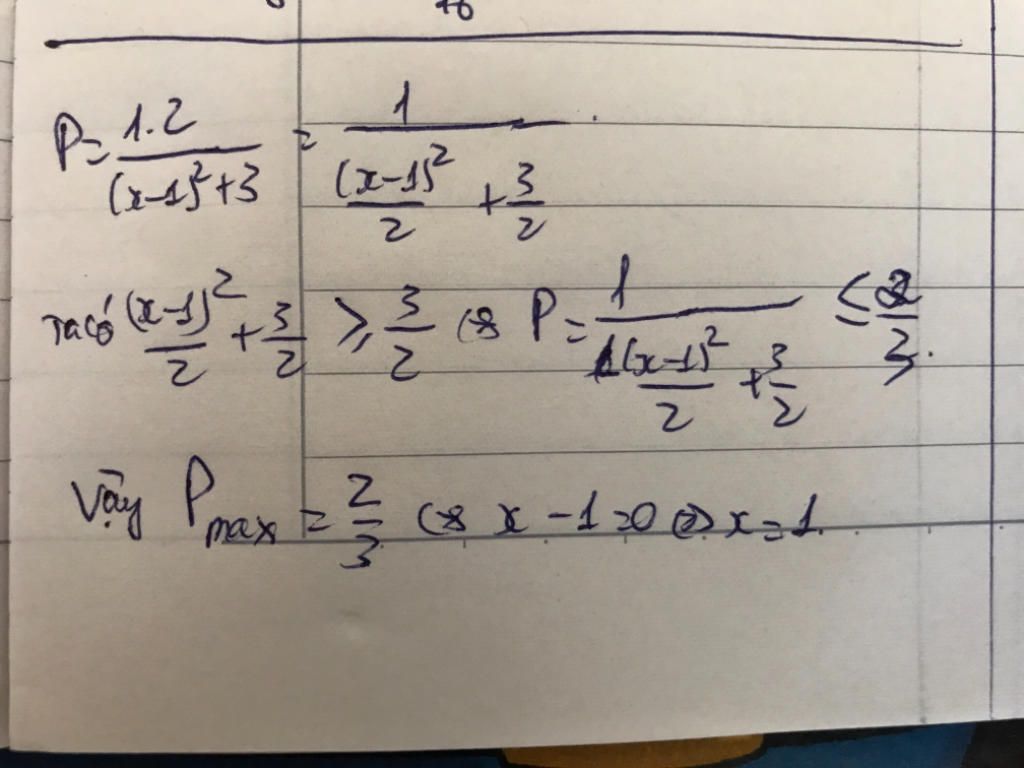 P = \frac{1.2}{(x-1)^2+3} = \frac{1}{\frac{(x-1)^2}{2} + \frac{3}{2}}.
Ta có \frac{(x-1)^2}{2} + \frac{3}{2} ≥ \frac{3}{2} (=> P = \frac{1}{\frac{(x-1)^2}{2} + \frac{3}{2}} ≤ \frac{2}{3}.
Vậy P_{max} = \frac{2}{3} (=> x - 1 = 0 <=> x = 1.